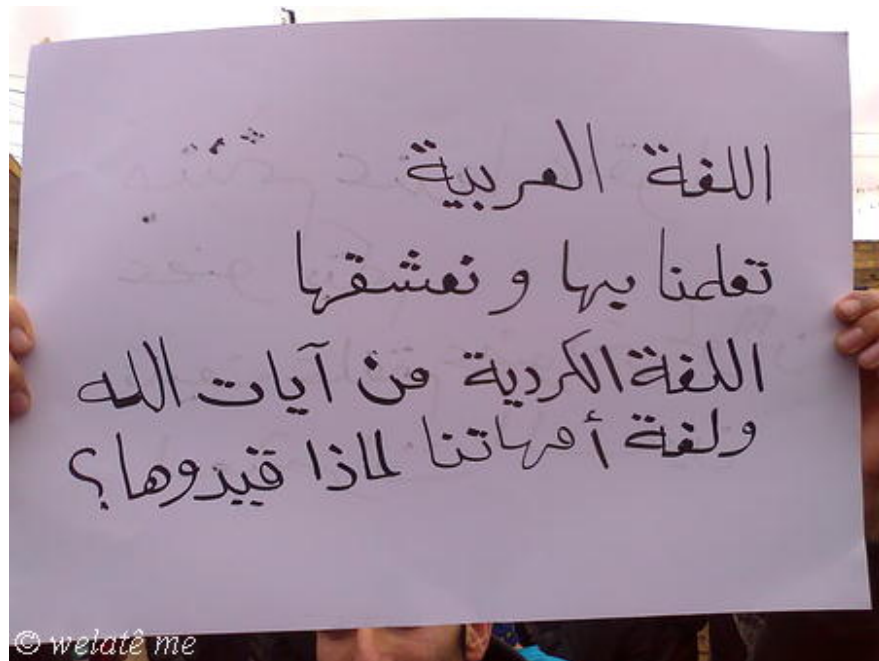 اللغة العربية
تعلمنا بها و نعشقها
اللغة الكردية من آيات الله
ولغة أمهاتنا لماذا قيدوها؟
© welatê me